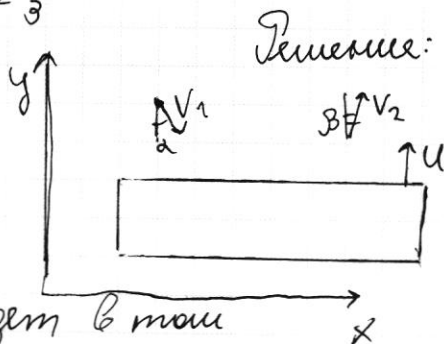 3
Решение:
y
V1
α
β
V2
u
дет в том
x